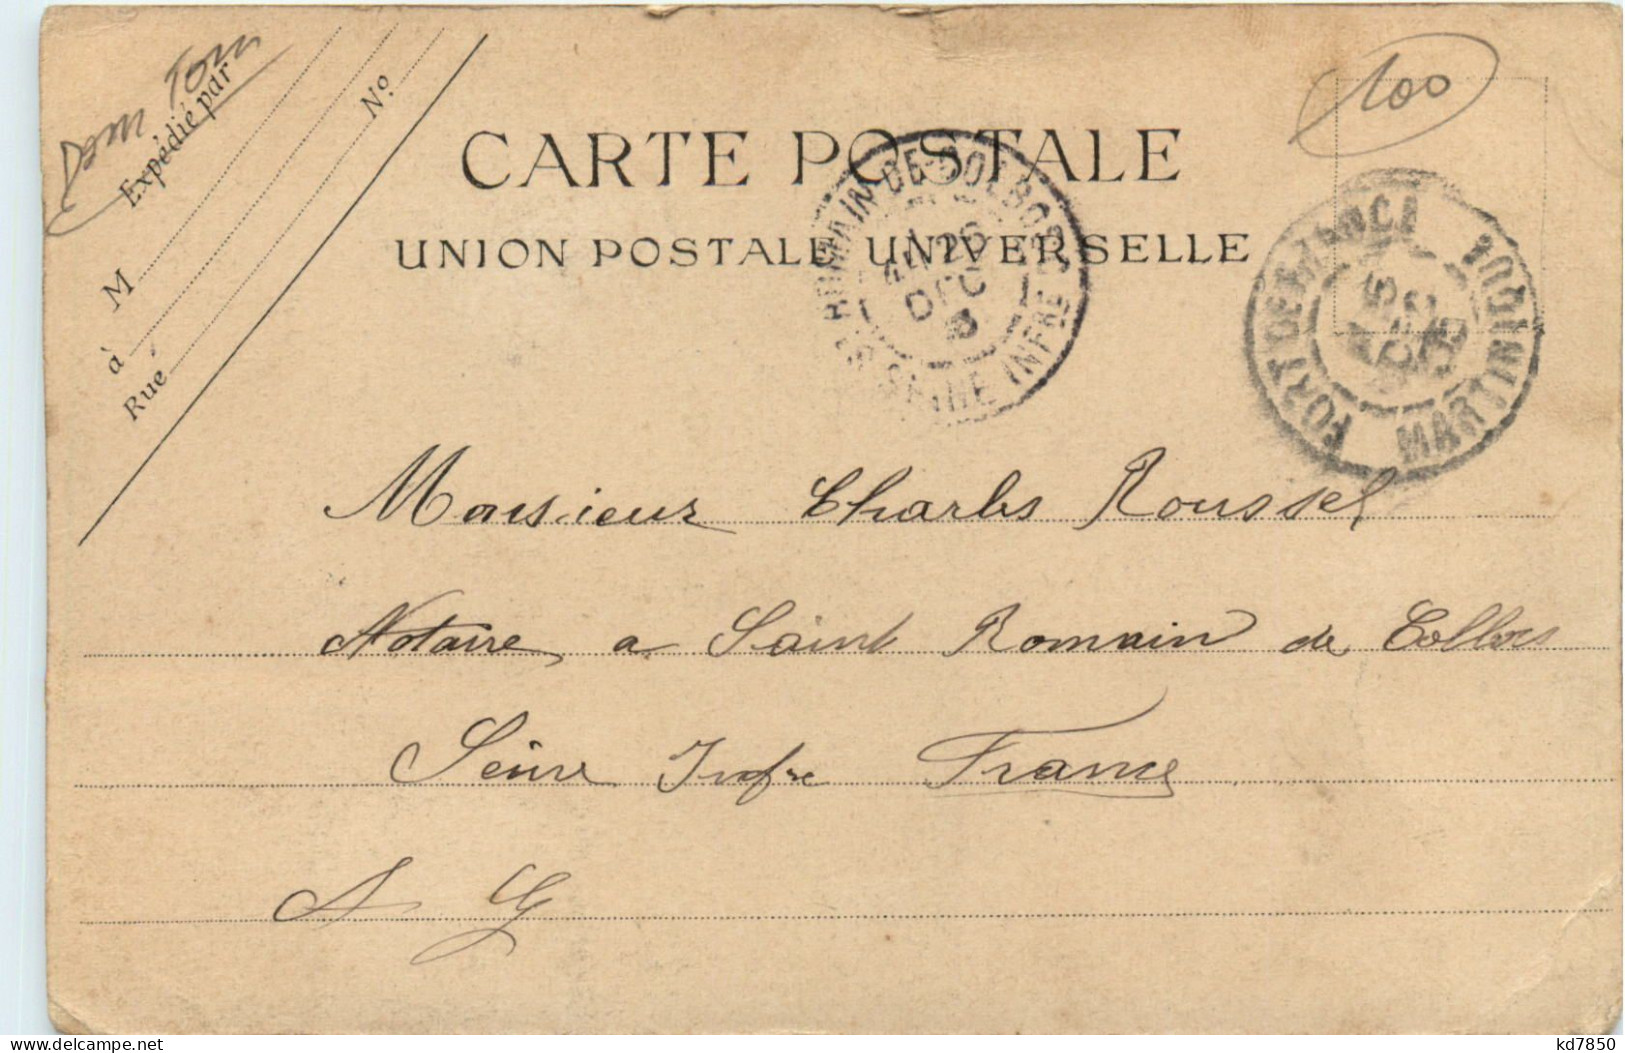 Dom Tom
Expédié par
M
N°
à
Rue
100
CARTE POSTALE
UNION POSTALE UNIVERSELLE
ROMAIN-DE-COLBOSC
26
DEC
SEINE INFRE
FORT DE FRANCE
MARTINIQUE
15
DEC
Monsieur Charles Roussel
Notaire a Saint Romain de Colbosc
Seine Infre France
A G
delcampe.net
kd7850